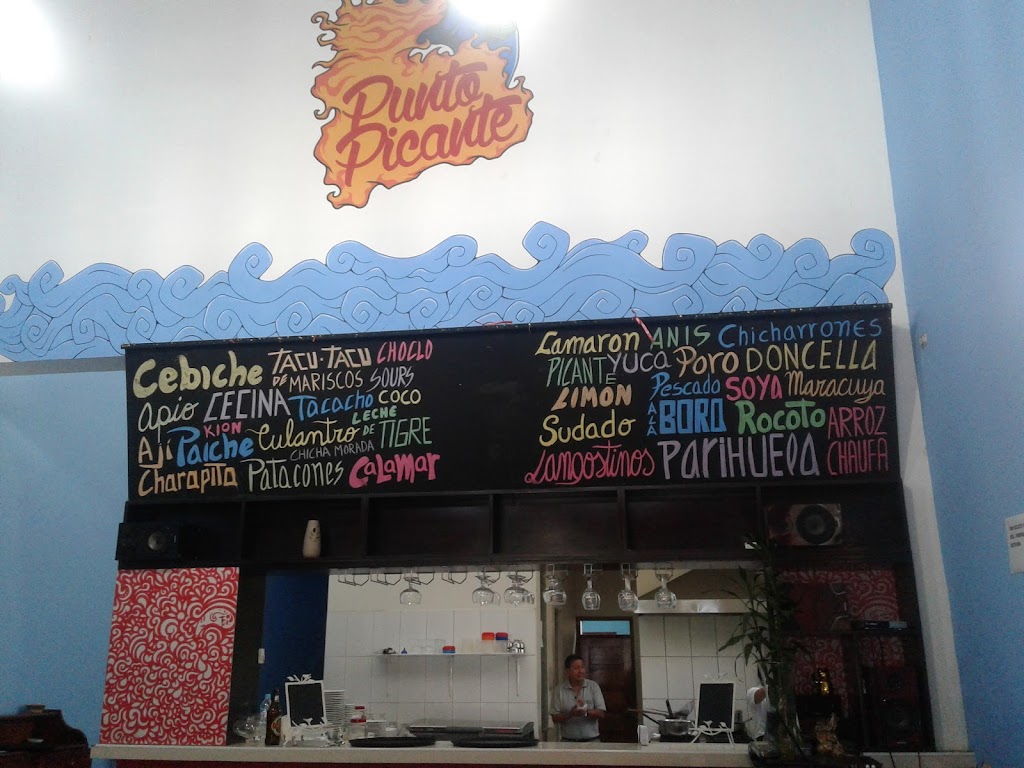 Punto
Picante
Cebiche TACU-TACU CHOCLO
DE MARISCOS SOURS
apio CECINA Tacacho COCO
KION LECHE
Ají Paiche Culantro DE TIGRE
CHICHA MORADA
Charapita Patacones Calamar
Camaron ANIS Chicharrones
PICANTE YUCA Poro DONCELLA
LIMON Pescado SOYA Maracuya
Sudado A LA BORO Rocoto ARROZ
Langostinos PariHuela CHAUFA